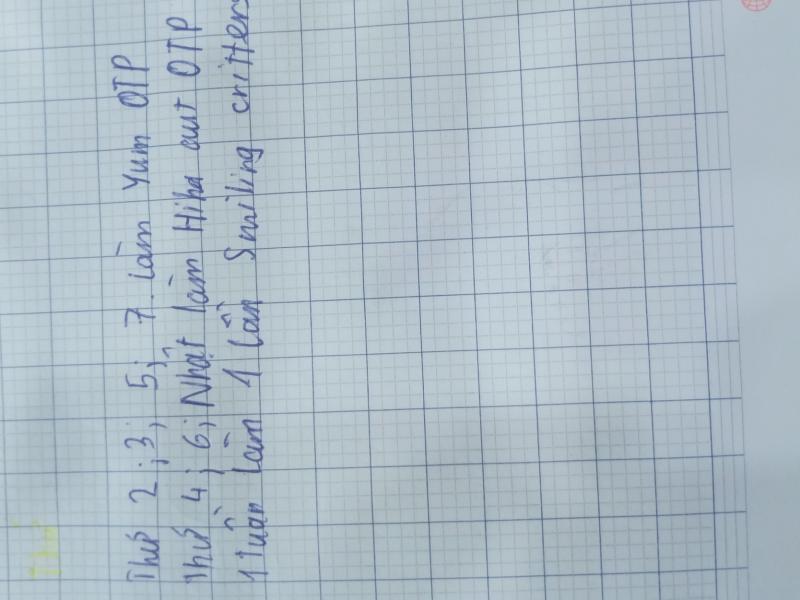 Thứ
Thứ 2; 3; 5; 7 làm Yum OTP
Thứ 4; 6; Nhật làm Hiha aut OTP
1 Tuần làm 1 lần Smiling critters